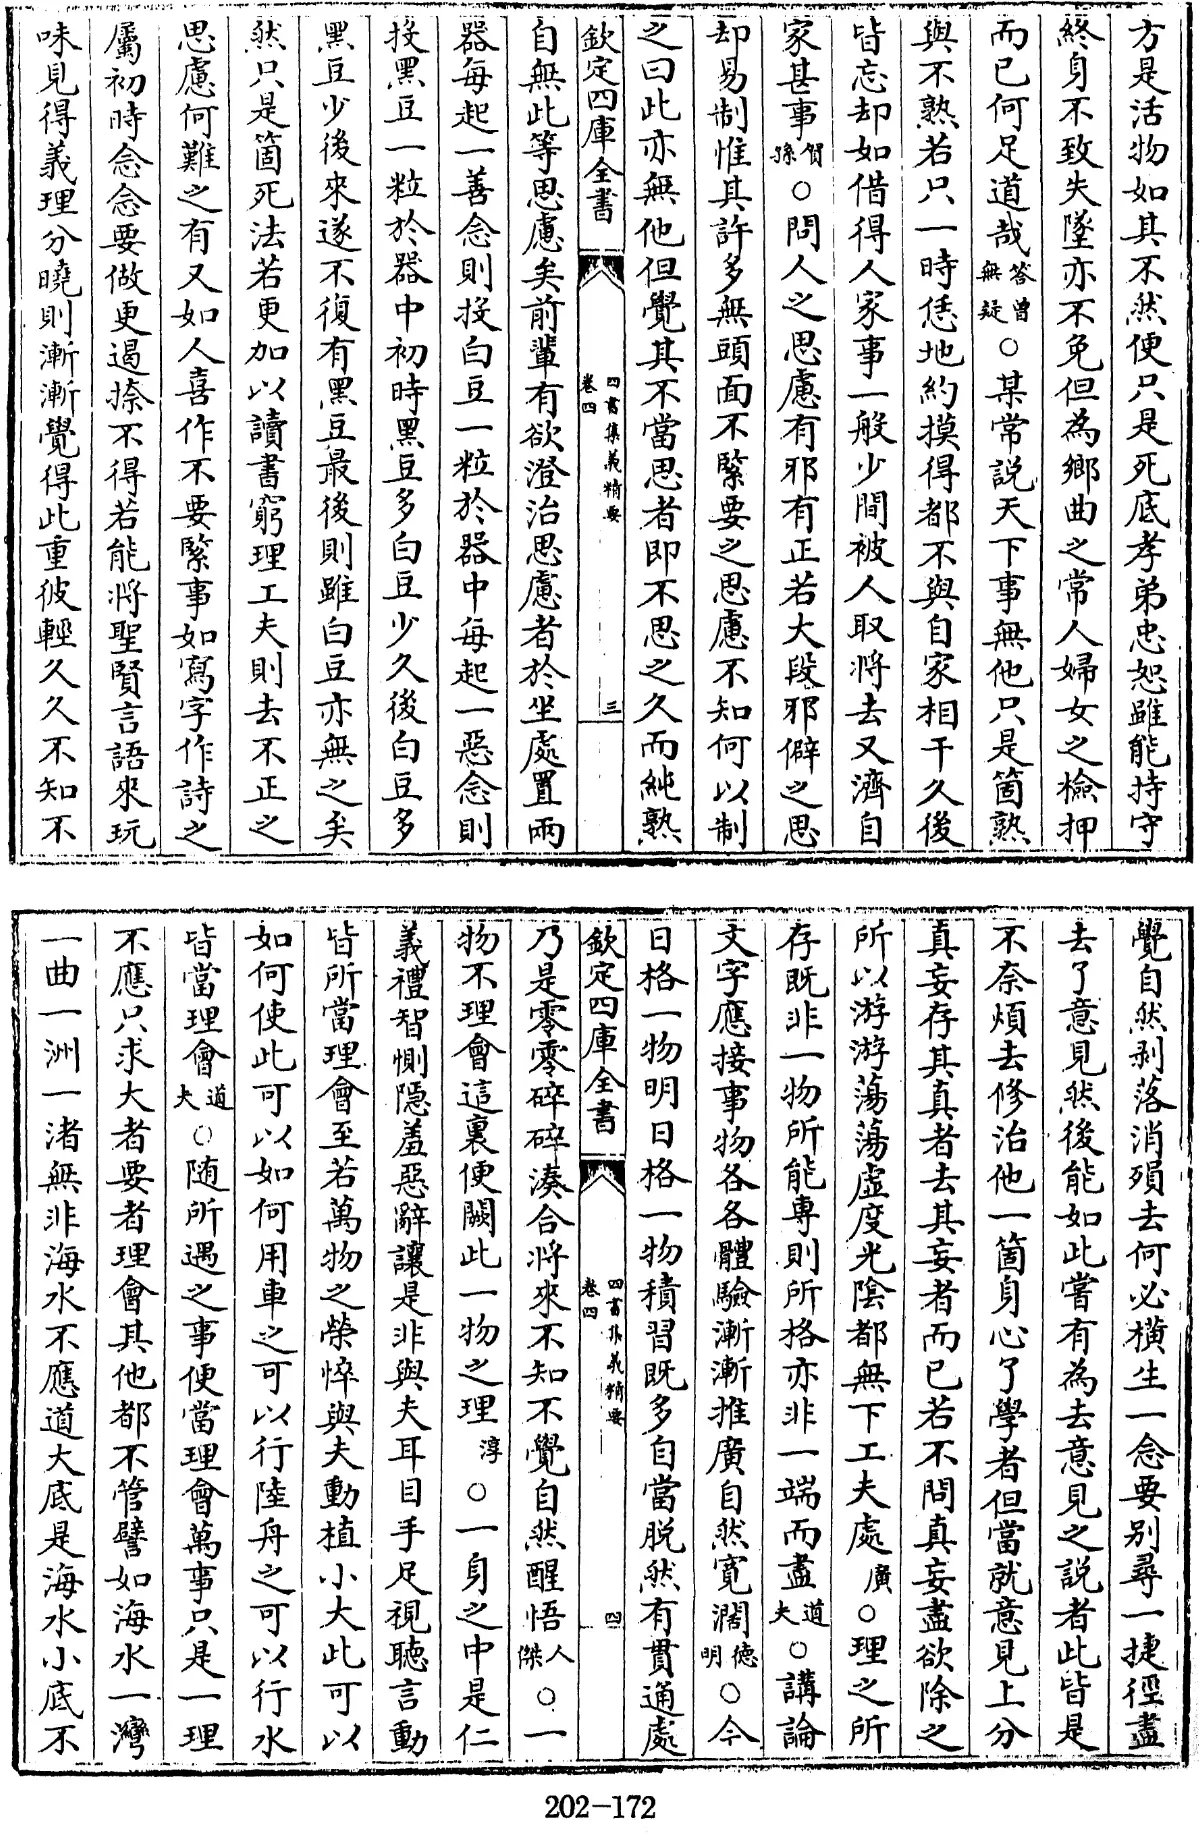 方是活物如其不然便只是死底孝弟忠恕雖能持守
終身不致失墜亦不免但為鄉曲之常人婦女之檢押
而已何足道哉答曾無疑○某常説天下事無他只是箇熟
與不熟若只一時恁地約摸得都不與自家相干久後
皆忘却如借得人家事一般少間被人取將去又濟自
家甚事賀孫○問人之思慮有邪有正若大段邪僻之思
却易制惟其許多無頭面不緊要之思慮不知何以制
之曰此亦無他但覺其不當思者即不思之久而純熟
欽定四庫全書
四書集義精要
卷四
三
自無此等思慮矣前輩有欲澄治思慮者於坐處置兩
器每起一善念則投白豆一粒於器中每起一惡念則
投黑豆一粒於器中初時黑豆多白豆少久後白豆多
黑豆少後來遂不復有黑豆最後則雖白豆亦無之矣
然只是箇死法若更加以讀書窮理工夫則去不正之
思慮何難之有又如人喜作不要緊事如寫字作詩之
屬初時念念要做更遏捺不得若能將聖賢言語來玩
味見得義理分曉則漸漸覺得此重彼輕久久不知不
覺自然剥落消殞去何必横生一念要别尋一捷徑盡
去了意見然後能如此嘗有為去意見之説者此皆是
不奈煩去修治他一箇身心了學者但當就意見上分
真妄存其真者去其妄者而已若不問真妄盡欲除之
所以游游蕩蕩虛度光陰都無下工夫處廣○理之所
存既非一物所能專則所格亦非一端而盡道夫○講論
文字應接事物各各體驗漸漸推廣自然寛濶德明○今
日格一物明日格一物積習既多自當脱然有貫通處
欽定四庫全書
四書集義精要
卷四
四
乃是零零碎碎湊合將來不知不覺自然醒悟人傑○一
物不理會這裏便闕此一物之理淳○一身之中是仁
義禮智惻隠羞惡辭讓是非與夫耳目手足視聽言動
皆所當理會至若萬物之榮悴與夫動植小大此可以
如何使此可以如何用車之可以行陸舟之可以行水
皆當理會道夫○随所遇之事便當理會萬事只是一理
不應只求大者要者理會其他都不管譬如海水一灣
一曲一洲一渚無非海水不應道大底是海水小底不
202-172